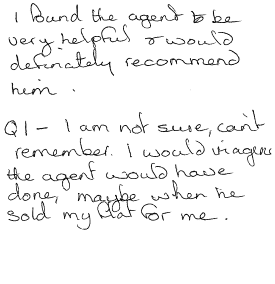 I found the agent to be
very helpful & would
definately recommend
him.
Q1 - I am not sure, can't
remember. I would imagine
the agent would have
done, maybe when he
sold my flat for me.